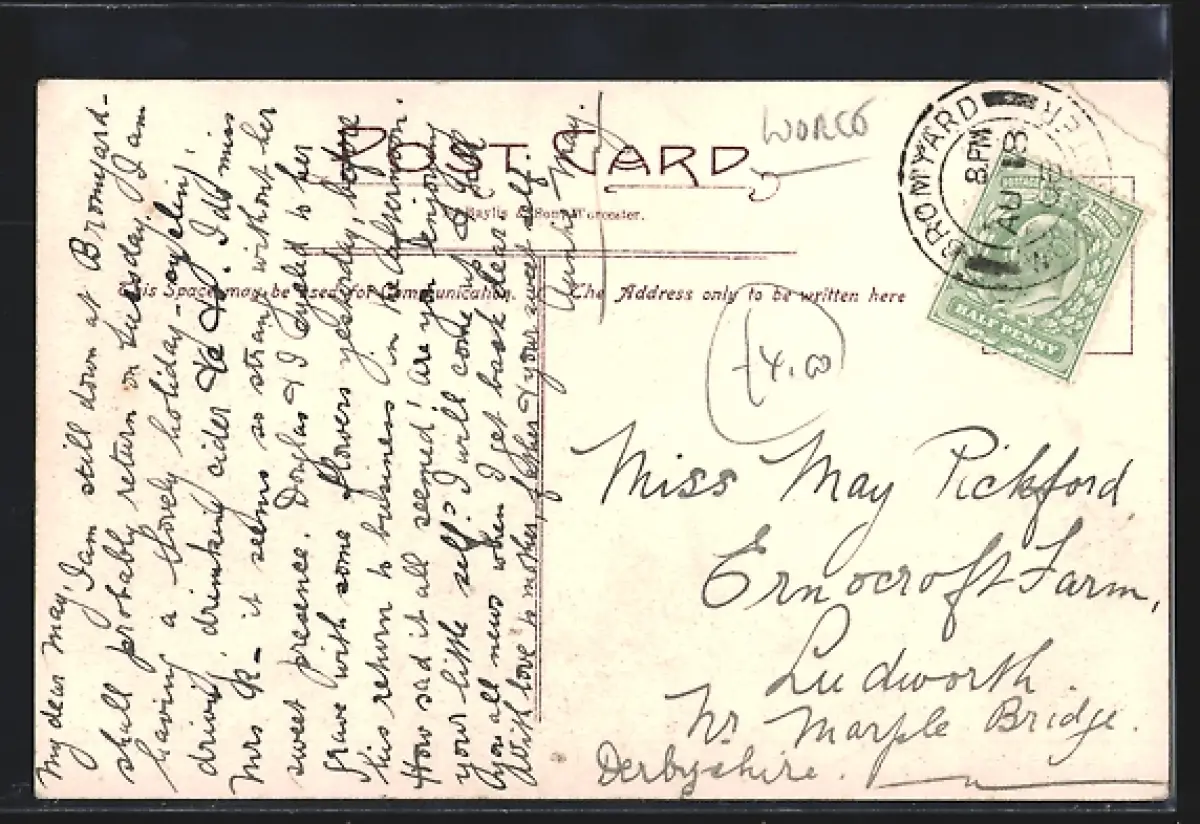 POST CARD
WORCS
Baylis & Son, Worcester.
This Space may be used for Communication.
The Address only to be written here
BROMYARD
8 PM
AU 8
HALF PENNY
£4.00
Miss May Pickford
Ernocroft Farm,
Ludworth.
Nr. Marple Bridge.
Derbyshire.
My dear May, I am still down at Bromyard-
shall probably return on Tuesday. I am
having a lovely holiday - cycling,
driving, drinking cider &c &c. I do miss
Mrs R- it seems so strange without her
sweet presence. Douglas & I cycled to her
grave with some flowers yesterday before
his return to business in afternoon.
How sad it all seemed! Are you enjoying
your little self? I will come & tell
you all news when I get back dear.
With love to mother, father & your sweet self.
Auntie May.